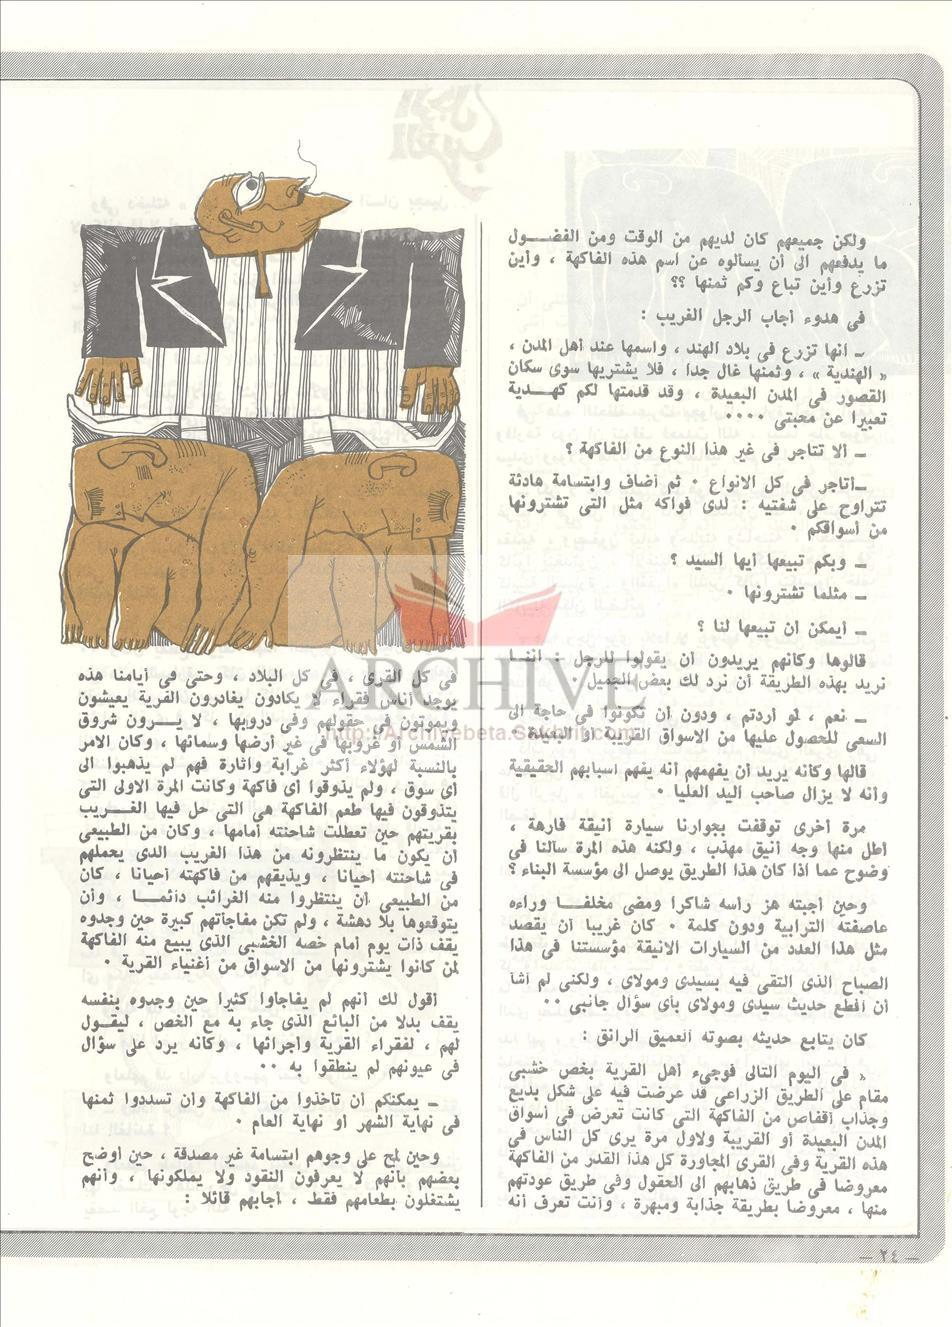 ولكن جميعهم كان لديهم من الوقت ومن الفضول
ما يدفعهم الى أن يسألوه عن اسم هذه الفاكهة ، وأين
تزرع وأين تباع وكم ثمنها ؟؟
فى هدوء أجاب الرجل الغريب :
ـ انها تزرع فى بلاد الهند ، واسمها عند أهل المدن ،
« الهندية » ، وثمنها غال جدا ، فلا يشتريها سوى سكان
القصور فى المدن البعيدة ، وقد قدمتها لكم كهدية
تعبيرا عن محبتى ٠٠٠٠
ـ ألا تتاجر فى غير هذا النوع من الفاكهة ؟
ـ أتاجر فى كل الانواع ٠ ثم أضاف وابتسامة هادئة
تتراوح على شفتيه : لدى فواكه مثل التى تشترونها
من أسواقكم ٠
ـ وبكم تبيعها أيها السيد ؟
ـ مثلما تشترونها ٠
ـ أيمكن ان تبيعها لنا ؟
قالوها وكأنهم يريدون أن يقولوا للرجل : اننا
نريد بهذه الطريقة أن نرد لك بعض الجميل
ـ نعم ، لو أردتم ، ودون أن تكونوا فى حاجة الى
السعى للحصول عليها من الاسواق القريبة أو البعيدة ٠
قالها وكأنه يريد أن يفهمهم أنه يفهم اسبابهم الحقيقية
وأنه لا يزال صاحب اليد العليا ٠
مرة أخرى توقفت بجوارنا سيارة أنيقة فارهة ،
أطل منها وجه أنيق مهذب ، ولكنه هذه المرة سألنا فى
وضوح عما اذا كان هذا الطريق يوصل الى مؤسسة البناء ؟
وحين أجبته هز رأسه شاكرا ومضى مخلفا وراءه
عاصفته الترابية ودون كلمة ٠ كان غريبا أن يقصد
مثل هذا العدد من السيارات الانيقة مؤسستنا فى هذا
الصباح الذى التقى فيه بسيدى ومولاى ، ولكنى لم أشأ
أن أقطع حديث سيدى ومولاى بأى سؤال جانبى ٠٠
كان يتابع حديثه بصوته العميق الرائق :
« فى اليوم التالى فوجىء أهل القرية بخص خشبى
مقام على الطريق الزراعى قد عرضت فيه على شكل بديع
وجذاب أقفاص من الفاكهة التى كانت تعرض فى أسواق
المدن البعيدة أو القريبة ولاول مرة يرى كل الناس فى
هذه القرية وفى القرى المجاورة كل هذا القدر من الفاكهة
معروضا فى طريق ذهابهم الى الحقول وفى طريق عودتهم
منها ، معروضا بطريقة جذابة ومبهرة ، وأنت تعرف أنه
فى كل القرى ، فى كل البلاد ، وحتى فى أيامنا هذه
يوجد أناس فقراء لا يكادون يغادرون القرية يعيشون
ويموتون فى حقولهم وفى دروبها ، لا يرون شروق
الشمس أو غروبها فى غير أرضها وسمائها ، وكان الامر
بالنسبة لهؤلاء أكثر غرابة واثارة فهم لم يذهبوا الى
أى سوق ، ولم يذوقوا أى فاكهة وكانت المرة الاولى التى
يتذوقون فيها طعم الفاكهة هى التى حل فيها الغريب
بقريتهم حين تعطلت شاحنته أمامها ، وكان من الطبيعى
أن يكون ما ينتظرونه من هذا الغريب الذى يحملهم
فى شاحنته أحيانا ، ويذيقهم من فاكهته أحيانا ، كان
من الطبيعى أن ينتظروا منه الغرائب دائما ، وأن
يتوقعوها بلا دهشة ، ولم تكن مفاجأتهم كبيرة حين وجدوه
يقف ذات يوم أمام خصه الخشبى الذى يبيع منه الفاكهة
لمن كانوا يشترونها من الاسواق من أغنياء القرية ٠
أقول لك أنهم لم يفاجأوا كثيرا حين وجدوه بنفسه
يقف بدلا من البائع الذى جاء به مع الخص ، ليقول
لهم ، لفقراء القرية وأجرائها ، وكأنه يرد على سؤال
فى عيونهم لم ينطقوا به ٠٠
ـ يمكنكم ان تأخذوا من الفاكهة وان تسددوا ثمنها
فى نهاية الشهر أو نهاية العام ٠
وحين لمح على وجوههم ابتسامة غير مصدقة ، حين أوضح
بعضهم بأنهم لا يعرفون النقود ولا يملكونها ، وأنهم
يشتغلون بطعامهم فقط ، أجابهم قائلا :
ـ ٢٤ ـ
ARCHIVE
http://Archivebeta.Sakhrit.com